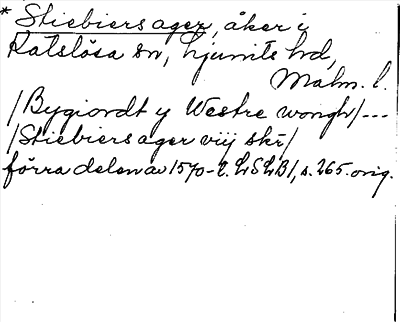 * Stiebiers ager, åker i
Katslösa sn, Ljunits hd,
Malm. l.
/Bygiordt y Westre wongh/---
/Stiebiers ager viij skr/
förra delen av 1570-t. LSLB/, s. 265. orig.